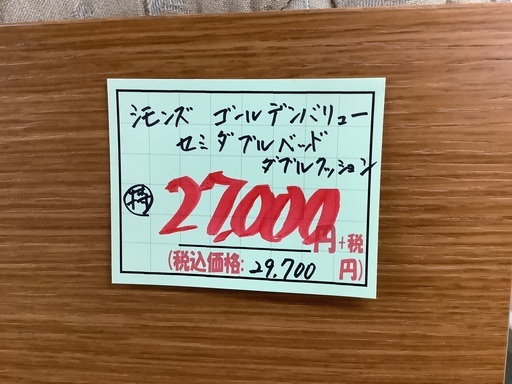 シモンズ ゴールデンバリュー
セミダブルベッド
ダブルクッション
特 27,000円+税
(税込価格: 29,700 円)